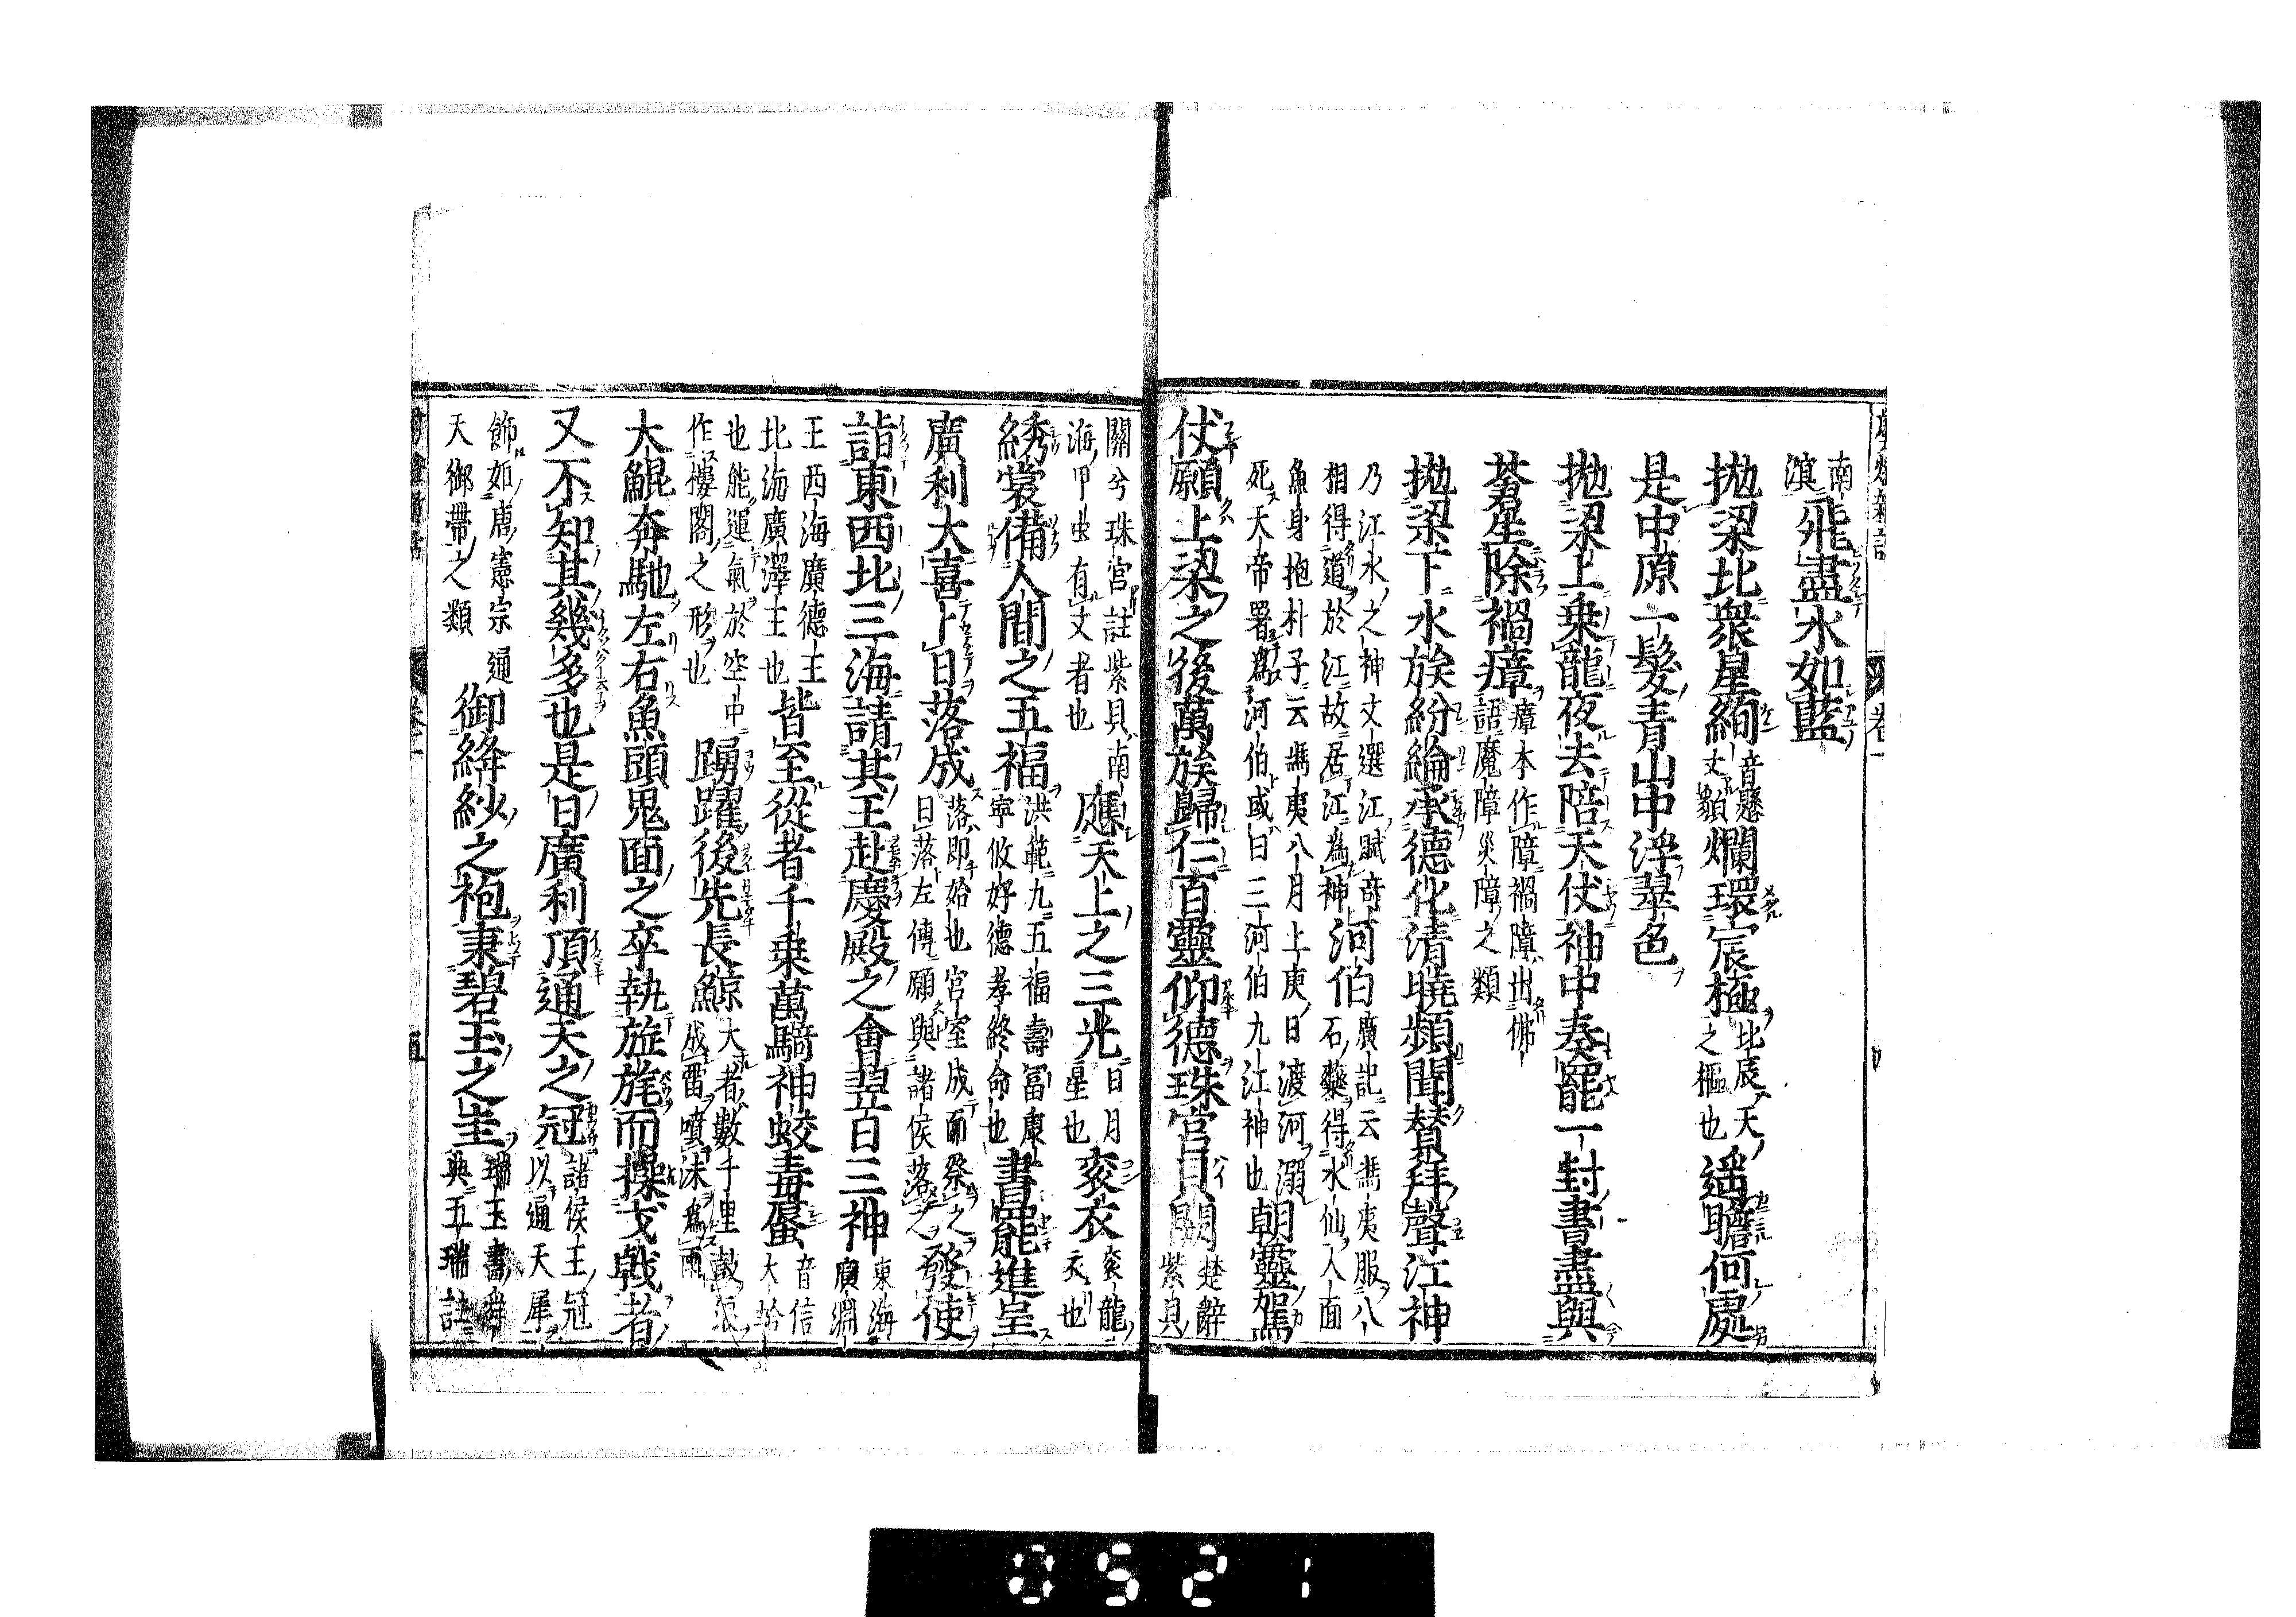 南
溟飛盡水如藍
抛梁北衆星絢音懸文貌爛環宸極北辰天之樞也遥瞻何處
是中原一髮青山中浮翠色
抛梁上乗龍夜去陪天仗袖中奏罷一封書盡與
蒼生除禍瘴瘴本作障禍障出佛語魔障災障之類
抛梁下水族紛綸承德化清曉頻聞賛拜聲江神
乃江水之神文選江賦奇相得道於江故居江爲神河伯廣記云馮夷服八石藥得水仙人面
魚身抱朴子云馮夷八月上庚日渡河溺死天帝署爲河伯或曰三河伯九江神也朝靈駕
伏願上梁之後萬族歸仁百靈仰德珠宮貝闕楚辭紫貝
闕兮珠宮註紫貝南海甲虫有文者也應天上之三光日月星也衮衣衮龍衣也
綉裳備人間之五福洪範九五福壽冨康寧攸好德考終命也書罷進呈
廣利大喜卜日落成落即始也宮室成而祭之曰落左傳願與諸侯落之發使
詣東西北三海請其王赴慶殿之會翌日三神東海廣淵
王西海廣德王北海廣澤王也皆至從者千乗萬騎神蛟毒蜃音信大蛤
也能運氣於空中作樓閣之形也踴躍後先長鯨大者數千里鼓浪成雷噴沫爲雨
大鯤奔馳左右魚頭鬼面之卒執旌旄而操戈戟者
又不知其幾多也是日廣利頂通天之冠諸侯王冠以通天犀
飾如唐憲宗通天御帶之類御絳紗之袍秉碧玉之圭瑞玉書舜典五瑞註
卷一
五